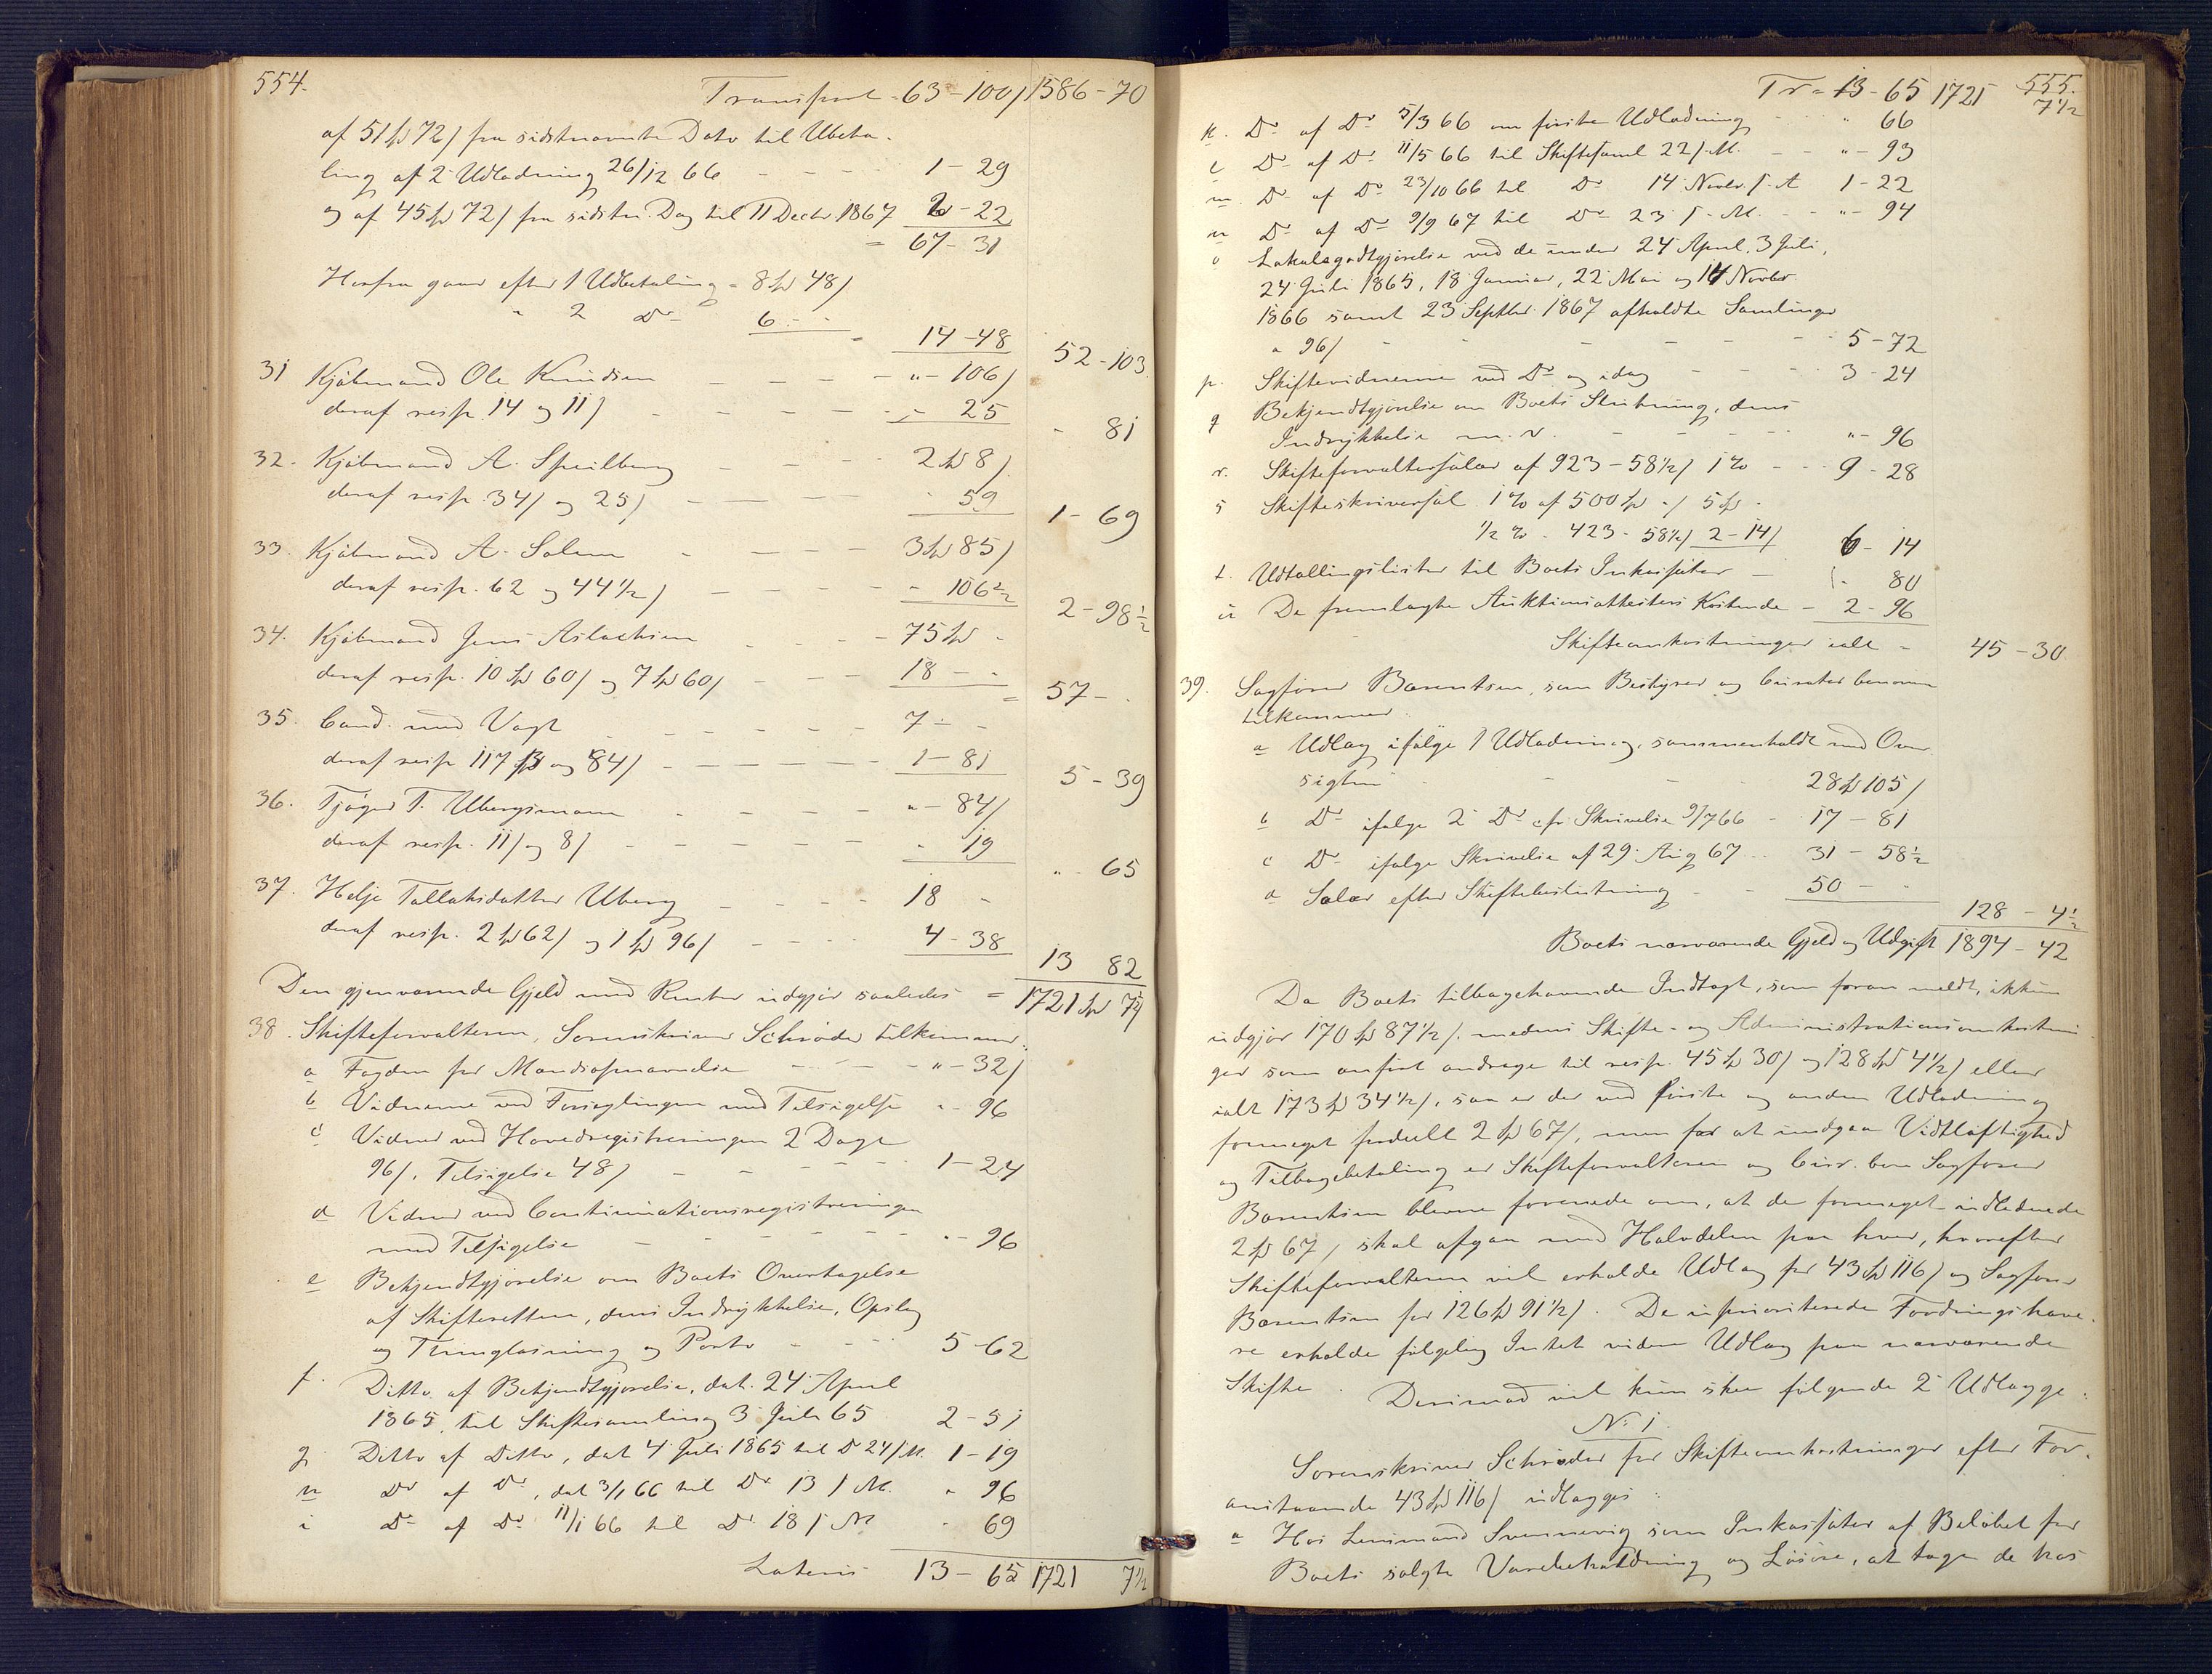 554.
Transport - 63 - 100 / 1586 - 70
af 51 Spd 72 / fra sidstnævnte Dato til Ubeta-
ling af 2 Udlodning 26/12 66 - - - - 1 - 29
og af 45 Spd 72 / fra sidstn. Dag til 11 Decbr. 1867 2 - 22
= 67 - 31
Herfra gaar efter 1 Udbetaling - 8 Spd 48 /
" 2 Do 6 - -
- 14 - 48 52 - 103.
31 Kjøbmand Ole Knudsen - - - - " - 106 /
deraf resp. 14 og 11 / - - - - - " - 25
- 81
32. Kjøbmand A. Speilberg - - - 2 Spd 8 /
deraf resp. 34 / og 25 / - - - - 59
1 - 69
33. Kjøbmand A. Salum - - - - 3 Spd 85 /
deraf resp. 62 og 44 1/2 / - - - - 106 1/2
2 - 98 1/2
34. Kjøbmand Jens Aslachsen - - - 75 Spd -
deraf resp. 10 Spd 60 / og 7 Spd 60 / - - - 18 - -
= 57 - .
35. Cand. med Vogt - - - - - 7 - -
deraf resp 117 ß og 84 / - - - - - - 1 - 81
5 - 39
36. T. Ubergsmoen - - - - " - 84 /
deraf resp. 11 / og 8 / - - - - - - 19
" - 65
37. Helje Tallaksdatter Uberg - - - - 18 -
deraf resp. 2 Spd 62 / og 1 Spd 96 / - - - - 4 - 38
13 82
Den gjenværende Gjeld med Renter udgjør saaledes = 1721 Spd 7 1/2 /
38. Skifteforvalteren, Sorenskriver Schrøder tilkommer:
a Fogden for Mandsopnævnelse - - - " - 32 /
b Vidnerne ved Forseglingen med Tilsigelse - - 96
c Vidner ved Hovedregistreringen 2 Dage
96 /, Tilsigelse 48 / - - - - - - 1 - 24
d Vidner ved Continuationsregistreringen
med Tilsigelse - - - - - - " - 96
e Bekjendtgjørelse om Boets Overtagelse
af Skifteretten, dens Indrykkelse, Opslag
og Thinglæsning og Porto - - - - 5 - 62
f. Ditto af Bekjendtgjørelse, dat. 24 April
1865, til Skiftesamling 3 Juli 65 2 - 51
g. Ditto af Ditto, dat 4 Juli 1865 til Do 24 / M. 1 - 19
h Do af Do, dat 3/1 66 til Do 13 / M. " 96
i Do af Do 11/1 66 til Do 18 / M - 69
Lateris 13 - 65 1721 7 1/2
555.
Tr = 13 - 65 1721 7 1/2
k. Do af Do 5/3 66 om første Udlodning - - " 66
l Do af Do 11/5 66 til Skiftesaml 22 / M. - - " - 93
m. Do af Do 23/10 66 til Do 14 Novbr. f. A 1 - 22
n Do af Do 9/9 67 til Do 23 f. M. - - " - 94
o Lokalegodtgjørelse ved de under 24 April, 3 Juli,
24 Juli 1865, 18 Januar, 22 Mai og 14 Novbr
1866 samt 23 Septbr 1867 afholdte Samlinger
a 96 / - - - - - - - 5 - 72
p. Skiftevidnerne ved Do og idag - - - - 3 - 24
q Bekjendtgjørelse om Boets Slutning, dens
Indrykkelse m. v. - - - - - " - 96
r. Skifteforvaltersalær af 923 - 58 1/2 / 1 % - - - 9 - 28
s Skifteskriversal. 1 % af 500 Spd - / 5 Spd -
1/2 % - 423 - 58 1/2 / 2 - 14 / 6 - 14
t. Udtællingslister til Boets Inkassator - 80
u De fremlagte Auktionsattesters Kostende - 2 - 96
Skifteomkostninger ialt - 45 - 30
39. Sagfører Barentsen, som Bestyrer og Curator bonorum
tilkommer:
a Udlæg ifølge 1 Udlodning, sammenholdt med Over-
sigten - - - 28 Spd 105 /
b Do ifølge 2 Do cfr Skrivelse 9/7 66 - 17 - 81
c Do ifølge Skrivelse af 29 Aug 67 - - 31 - 58 1/2
d Salær efter Skiftebeslutning - - 50 - -
128 - 4 1/2
Boets nærværende Gjeld og Udgift 1894 - 42
Da Boets tilbageværende Indtægt, som foran meldt, ikkun
udgjør 170 Spd 87 1/2 /, medens Skifte- og Administrationsomkostnin-
ger som anført andrage til resp. 45 Spd 30 / og 128 Spd 4 1/2 / eller
ialt 173 Spd 34 1/2 /, saa er der ved første og anden Udlodning
formeget fordeelt 2 Spd 67 /, men for at undgaa Vidtløftighed
og Tilbagebetaling er Skifteforvalteren og Cur. bon Sagfører
Barentsen blevne forenede om, at de formeget udlodede
2 Spd 67 / skal afgaa med Halvdelen paa hver, hvorefter
Skifteforvalteren vil erholde Udlæg for 43 Spd 116 / og Sagfører
Barentsen for 126 Spd 91 1/2 /. De uprioriterede Fordringshave-
re erholde følgelig Intet videre Udlæg paa nærværende
Skifte. Derimod vil kun skee følgende 2 Udlægge:
No 1.
Sorenskriver Schrøder for Skifteomkostninger efter For-
anstaaende 43 Spd 116 / udlægges:
a Hos Lensmand Svennevig som Inkassator af Beløbet for
Boets solgte Varebeholdning og Løsøre, at tage de hos